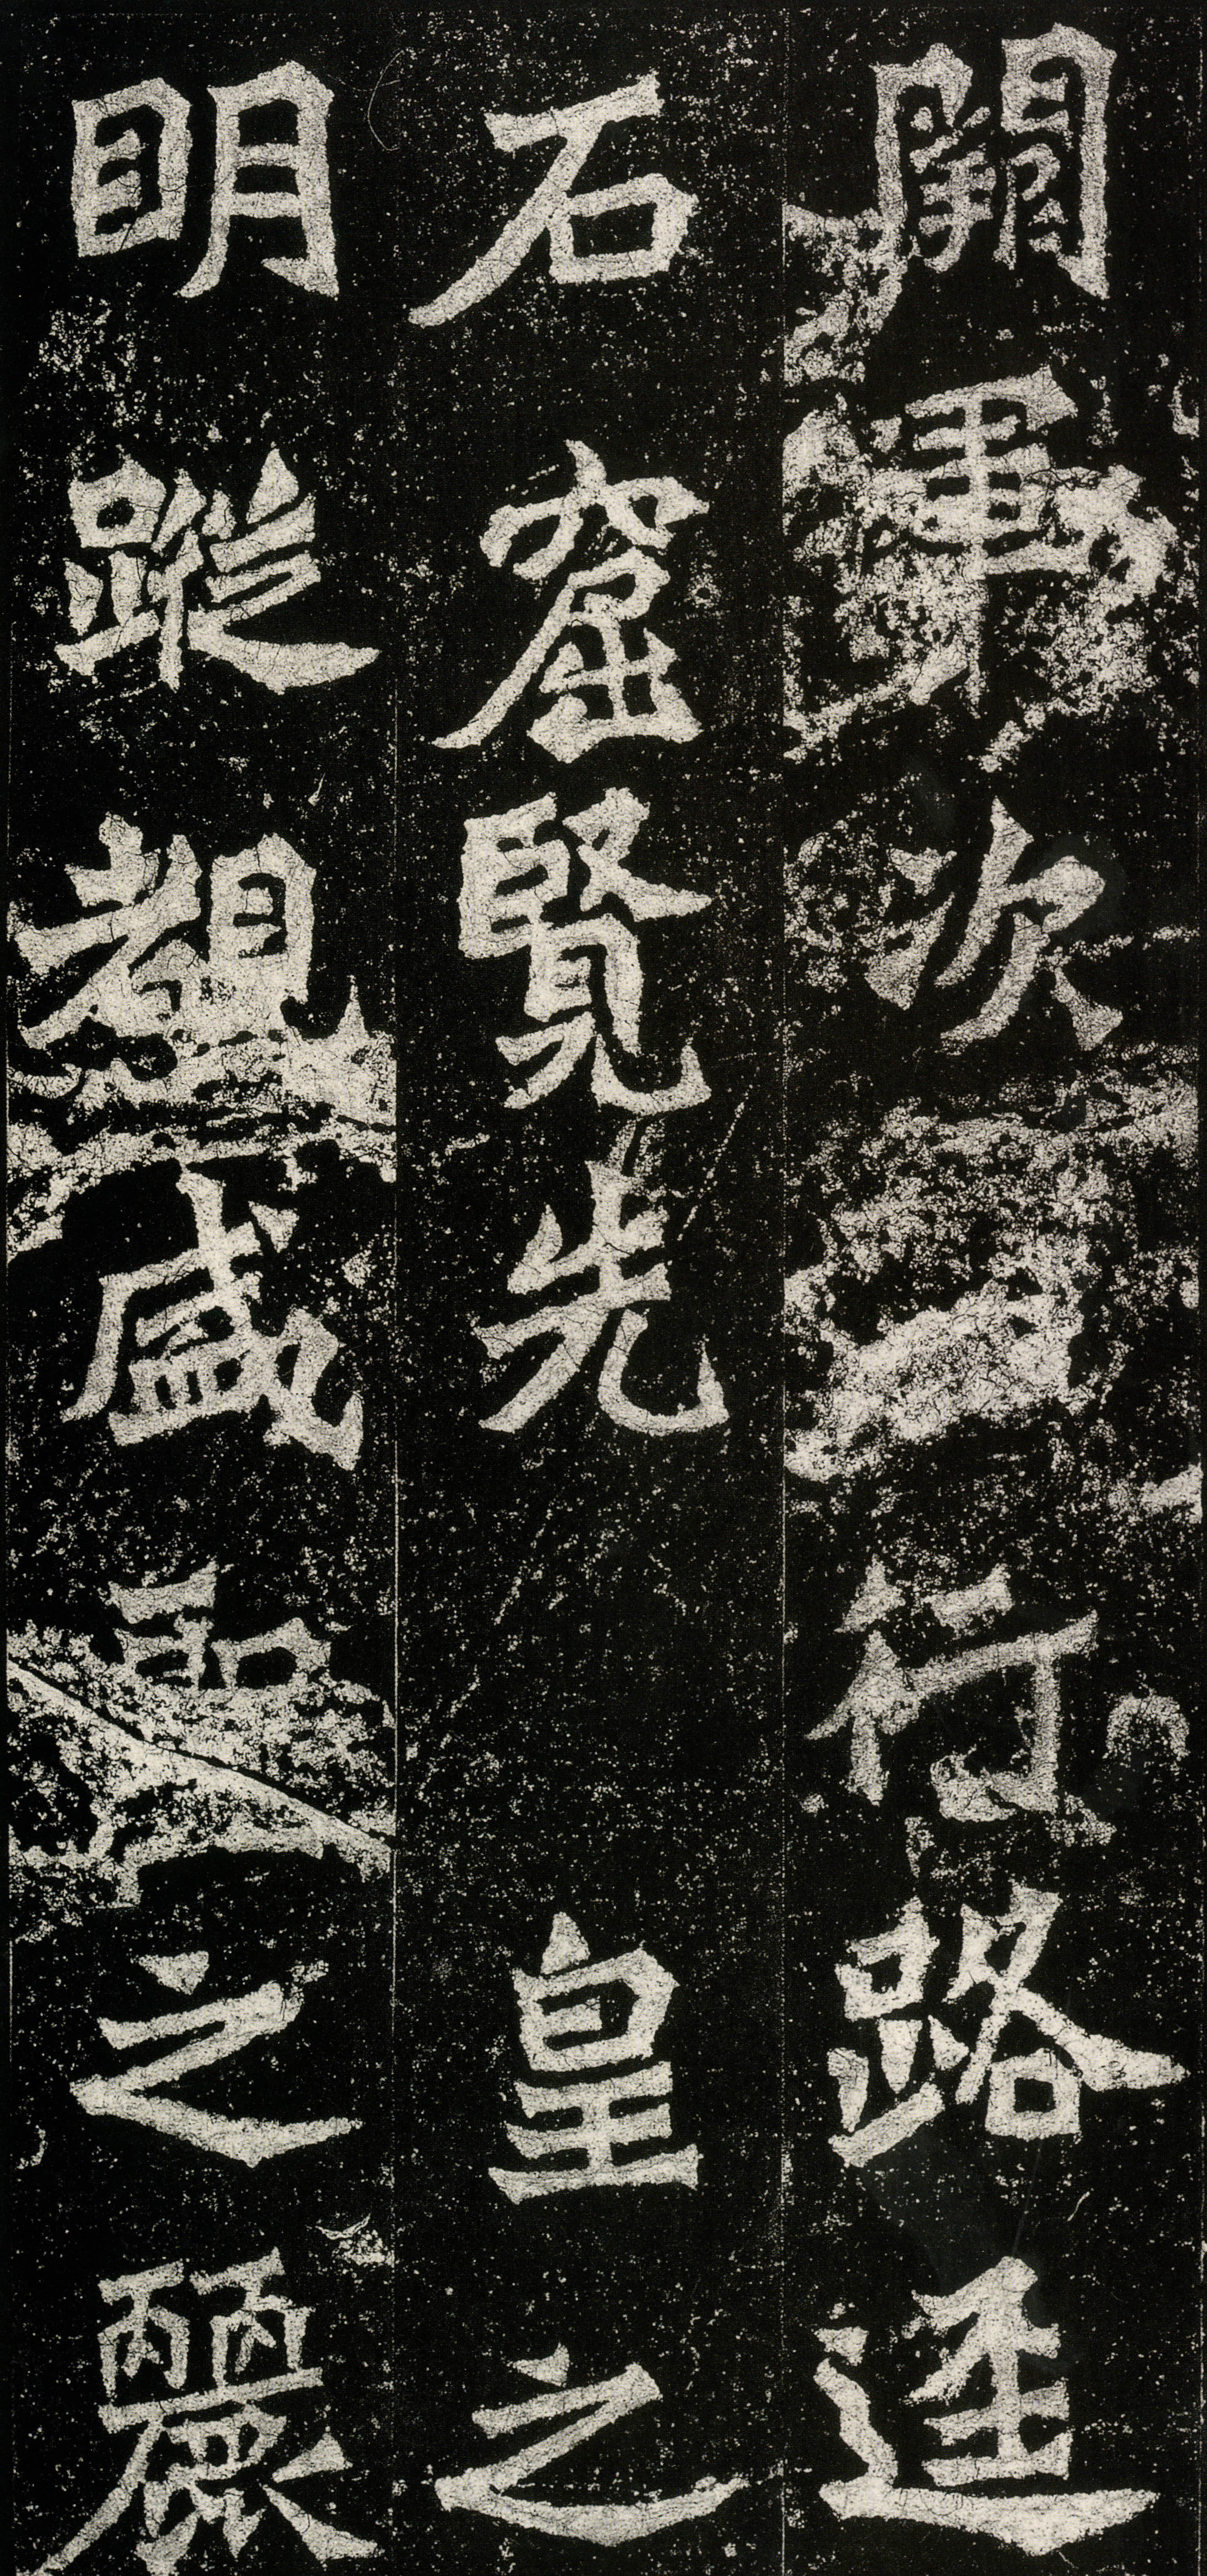 闕軍次行路逕
石窟覽先皇之
明蹤覩盛聖之麗